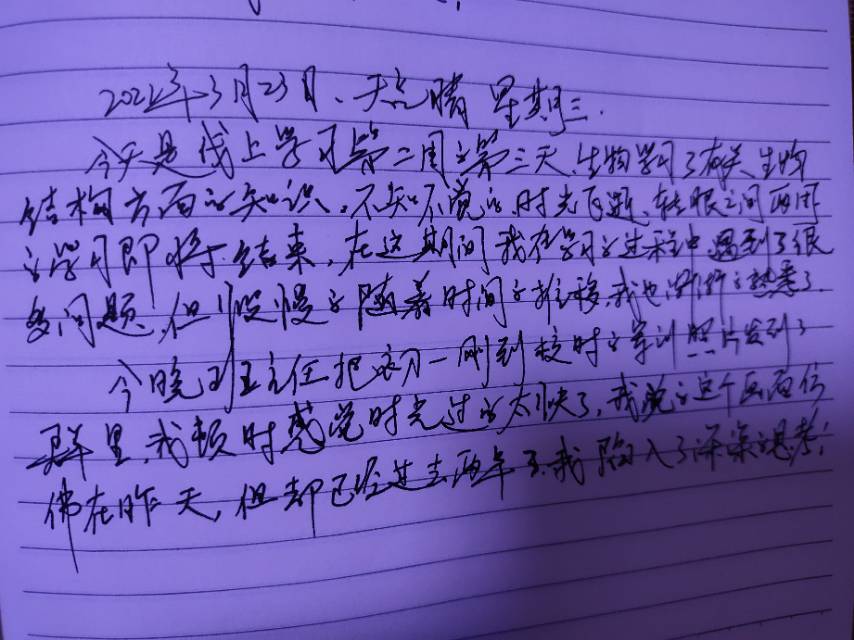 202年3月23日、天气晴 星期三.
今天是线上学习第二周之第三天,生物学习了有关生物
结构方面的知识,不知不觉的,时光飞逝,转眼之间两周
的学习即将结束,在这期间我在学习的过程中遇到了很
多问题,但慢慢的随着时间的推移,我也渐渐的熟悉了.
今晚班主任把初一刚到校时的军训照片发到了
群里,我顿时感觉时光过的太快了,我觉的这个画面仿
佛在昨天,但却已经过去两年了.我陷入了深深思考;